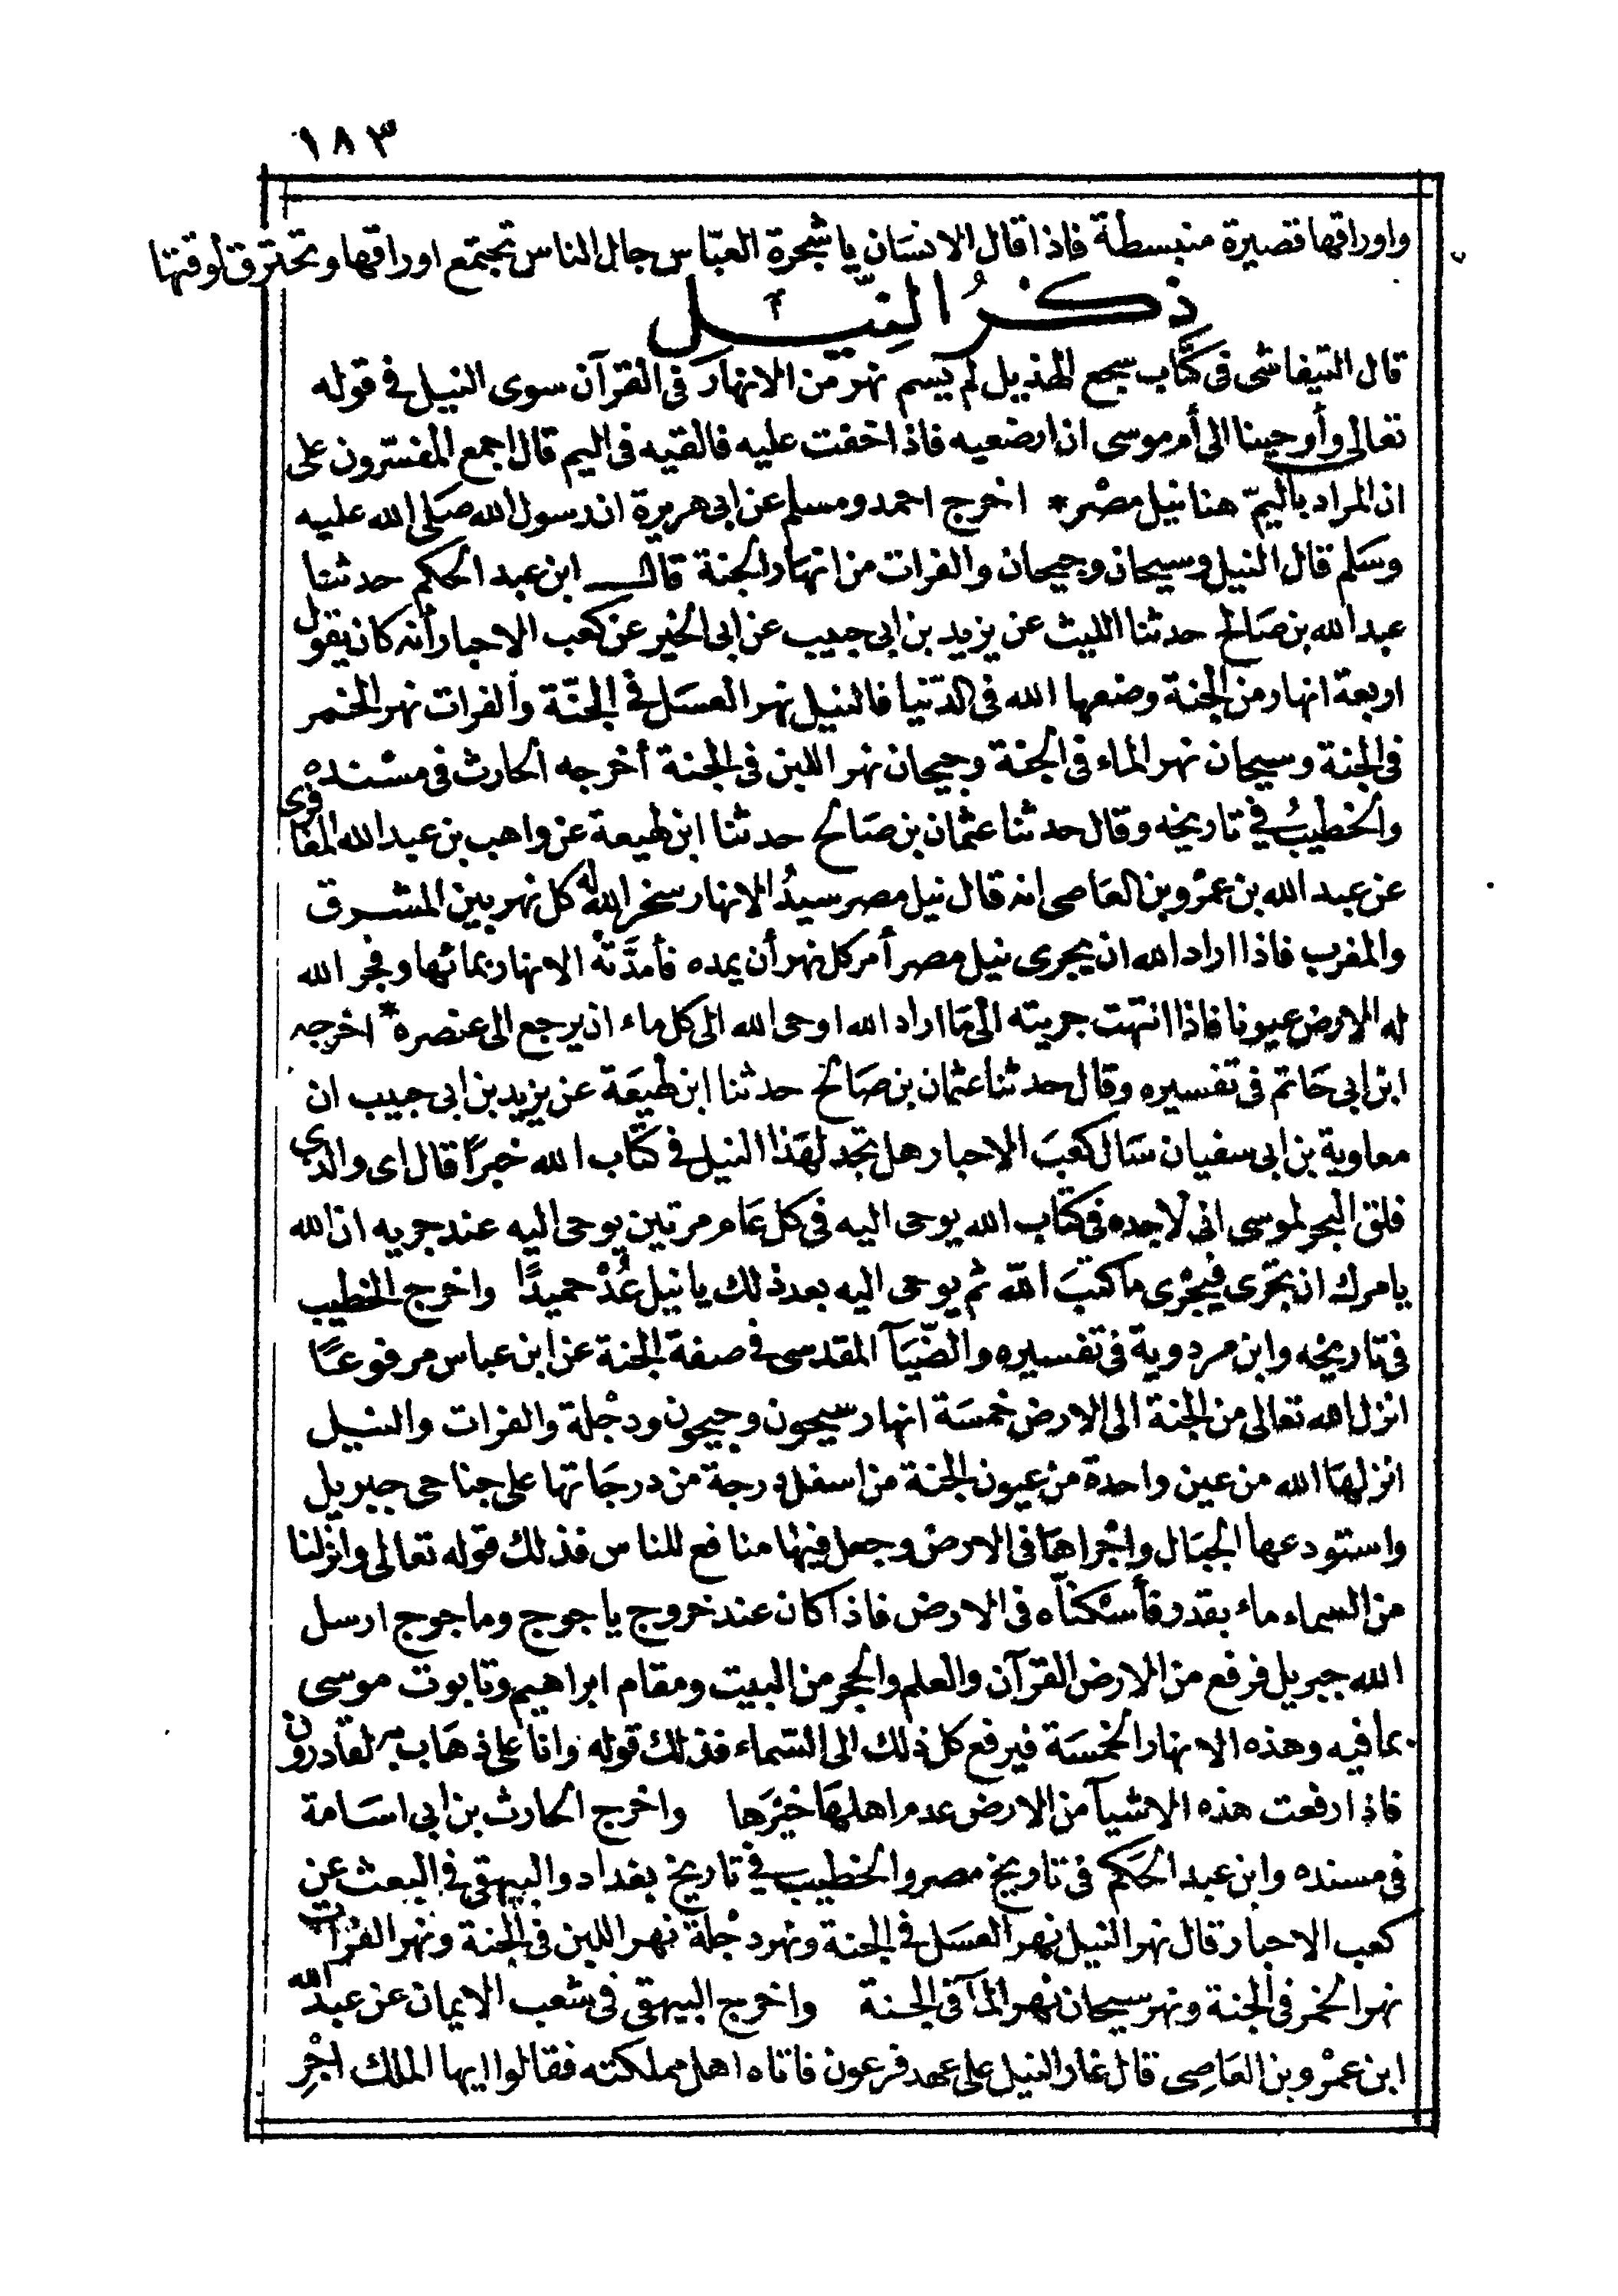 ١٨٣
واوراقها قصيرة منبسطة فاذا قال الانسان يا شجرة العبّاس جال الناس تجتمع اوراقها وتحترق لوقتها
ذكرُ النّيل
قال التيفاشى فى كتاب سجع الهذيل لم يسم نهر من الانهار فى القرآن سوى النيل فى قوله
تعالى وأوحينا الى أم موسى ان ارضعيه فاذا خفت عليه فالقيه فى اليم قال اجمع المفسّرون على
ان المراد باليمّ هنا نيل مصْر * اخرج احمد ومسلم عن ابى هريرة ان رسول الله صَلى الله عليه
وسَلم قال النيل وسيحان وجيحان والفرات من انهَار الجنة قال ابن عبد الحكم حدثنا
عبد الله بن صَالح حدثنا الليث عن يزيد بن ابى حبيب عن ابى الخير عن كعب الاحبار أنه كان يقول
اربعة انهار من الجنة وضعها الله فى الدّنيا فالنيل نهر العسَل فى الجنّة والفرات نهر الخمر
فى الجنة وسيحان نهر الماء فى الجنة وجيحان نهر اللبن فى الجنة أخرجه الحارث فى مسْنده
والخطيبُ فى تاريخه وقال حدثنا عثمان بن صَالح حدثنا ابن لهيعة عن واهب بن عبد الله المعافرى
عن عبد الله بن عمْرو بن العَاصى انه قال نيل مصر سيدُ الانهار سخر الله له كل نهر بين المشرق
والمغرب فاذا اراد الله ان يجرى نيل مصر أمر كل نهر أن يمده فأمدَّتهُ الانهار بمائها وفجر الله
له الارض عيونا فاذا انتهت جريته الى مَا اراد الله اوحى الله الى كل ماء ان يرجع الى عنصره * اخرجه
ابن ابى حَاتم فى تفسيره وقال حدثنا عثمان بن صَالح حدثنا ابن لهيعَة عن يزيد بن ابى حبيب ان
معاوية بن ابى سفيان سَال كعبَ الاحبار هل تجد لهَذا النيل فى كتاب الله خبرًا قال اى والذى
فلق البحر لموسى انى لاجده فى كتاب الله يوحى اليه فى كل عَام مرتين يوحى اليه عند جريه ان الله
يامرك ان تجرى فيجْرى ما كتبَ اللّه ثم يوحى اليه بعد ذلك يا نيل عُدْ حميدًا واخرج الخطيب
فى تاريخه وابن مردوية فى تفسيره والضّيَآ المقدسى فى صفة الجنة عن ابن عباس مرفوعًا
انزل الله تعالى من الجنة الى الارض خمسَة انهار سيحون وجيحون ودجْلة والفرات والنيل
انزلهَا الله من عين واحدة من عيون الجنة من اسفل درجة من درجَاتها على جناحى جبريل
واستودعها الجبَال واجْراهَا فى الارض وجعل فيهَا منافع للناس فذلك قوله تعالى وانزلنا
من السماء ماء بقدر فأسْكنّاه فى الارض فاذا كان عند خروج ياجوج وماجوج ارسل
الله جبريل فرفع من الارض القرآن والعلم والحجر من البيت ومقام ابراهيم وتابوت موسى
بما فيه وهذه الانهار الخمسَة فيرفع كل ذلك الى السّماء فذلك قوله وانا على ذهَاب به لقادرون
فاذا رفعت هذه الاشيآ من الارض عدم اهلهَا خيْرَها واخرج الحارث بن ابى اسَامة
فى مسنده وابن عبد الحَكم فى تاريخ مصر والخطيب فى تاريخ بغداد والبيهقى فى البعث عن
كعب الاحبار قال نهر النيل نهر العسَل فى الجنة ونهر دجْلة نهر اللبن فى الجنة ونهر الفرات
نهر الخمر فى الجنة ونهر سيحان نهر المآ فى الجنة واخرج البيهقى فى شعب الايمان عن عبد الله
ابن عمْرو بن العَاصِى قال غار النيل على عهد فرعون فاتاه اهل مملكته فقالوا ايها الملك اجْرِ